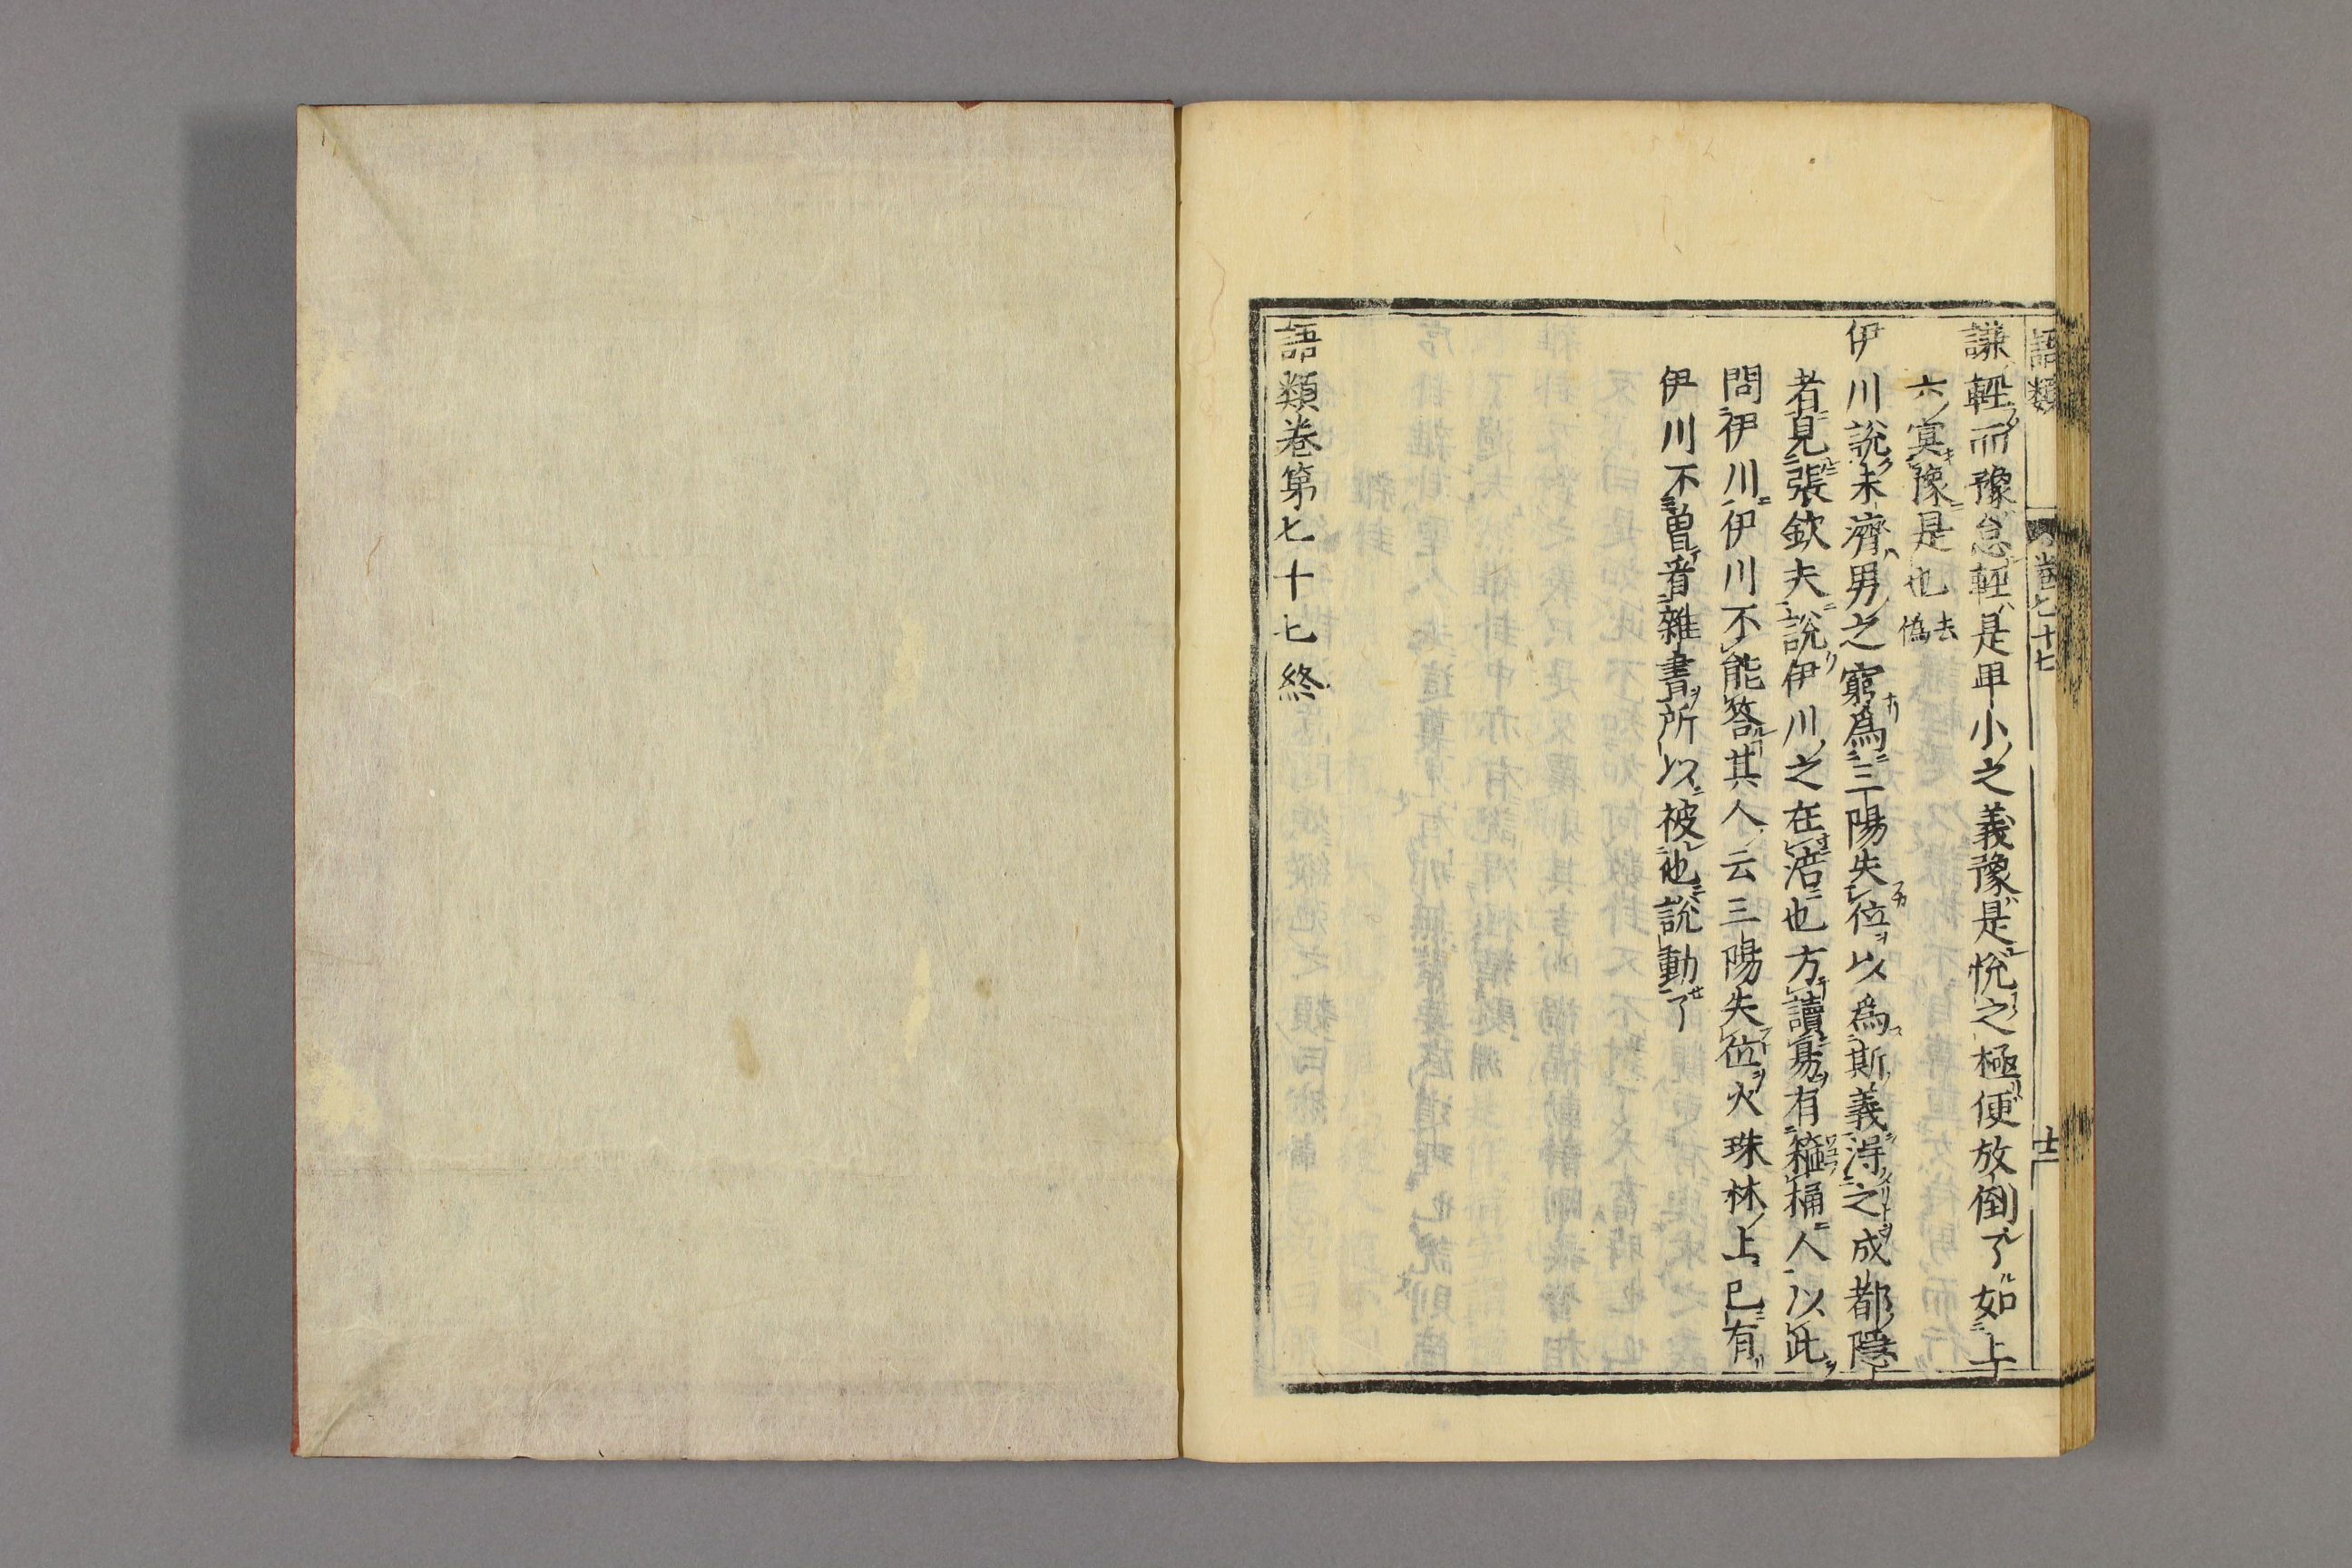 語類 卷七十七 十一
謙輕而豫怠輕是卑小之義豫是悅之極便放倒了如上
六冥豫是也去偽
伊川說未濟男之窮爲三陽失位以爲斯義得之成都隱
者見張欽夫說伊川之在涪也方讀易有箍桶人以此
問伊川伊川不能答其人云三陽失位火珠林上已有
伊川不曽看雜書所以被他說動了
語類卷第七十七終